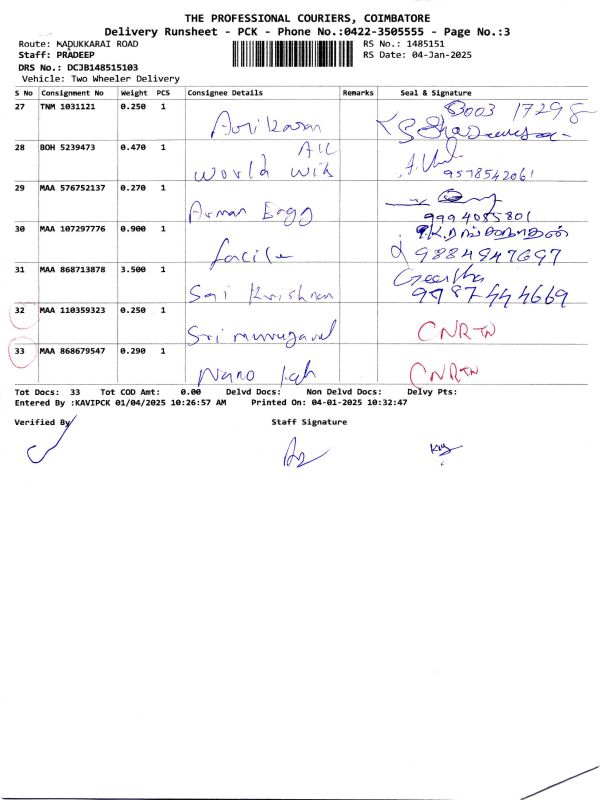 THE PROFESSIONAL COURIERS, COIMBATORE
Delivery Runsheet - PCK - Phone No.:0422-3505555 - Page No.:3
Route: MADUKKARAI ROAD RS No.: 1485151
Staff: PRADEEP RS Date: 04-Jan-2025
DRS No.: DCJB148515103
Vehicle: Two Wheeler Delivery
S No Consignment No Weight PCS Consignee Details Remarks Seal & Signature
27 TNM 1031121 0.250 1 17298
28 BOH 5239473 0.470 1 All
World Win 9578542061
29 MAA 576752137 0.270 1
Arman Engg 9994085801
30 MAA 107297776 0.900 1
facile 9884947697
31 MAA 868713878 3.500 1 Geertha
Sai Krishnan 9987444669
32 MAA 110359323 0.250 1
Sri murugavel CNRTN
33 MAA 868679547 0.290 1
Nano CNRTN
Tot Docs: 33 Tot COD Amt: 0.00 Delvd Docs: Non Delvd Docs: Delvy Pts:
Entered By :KAVIPCK 01/04/2025 10:26:57 AM Printed On: 04-01-2025 10:32:47
Verified By Staff Signature